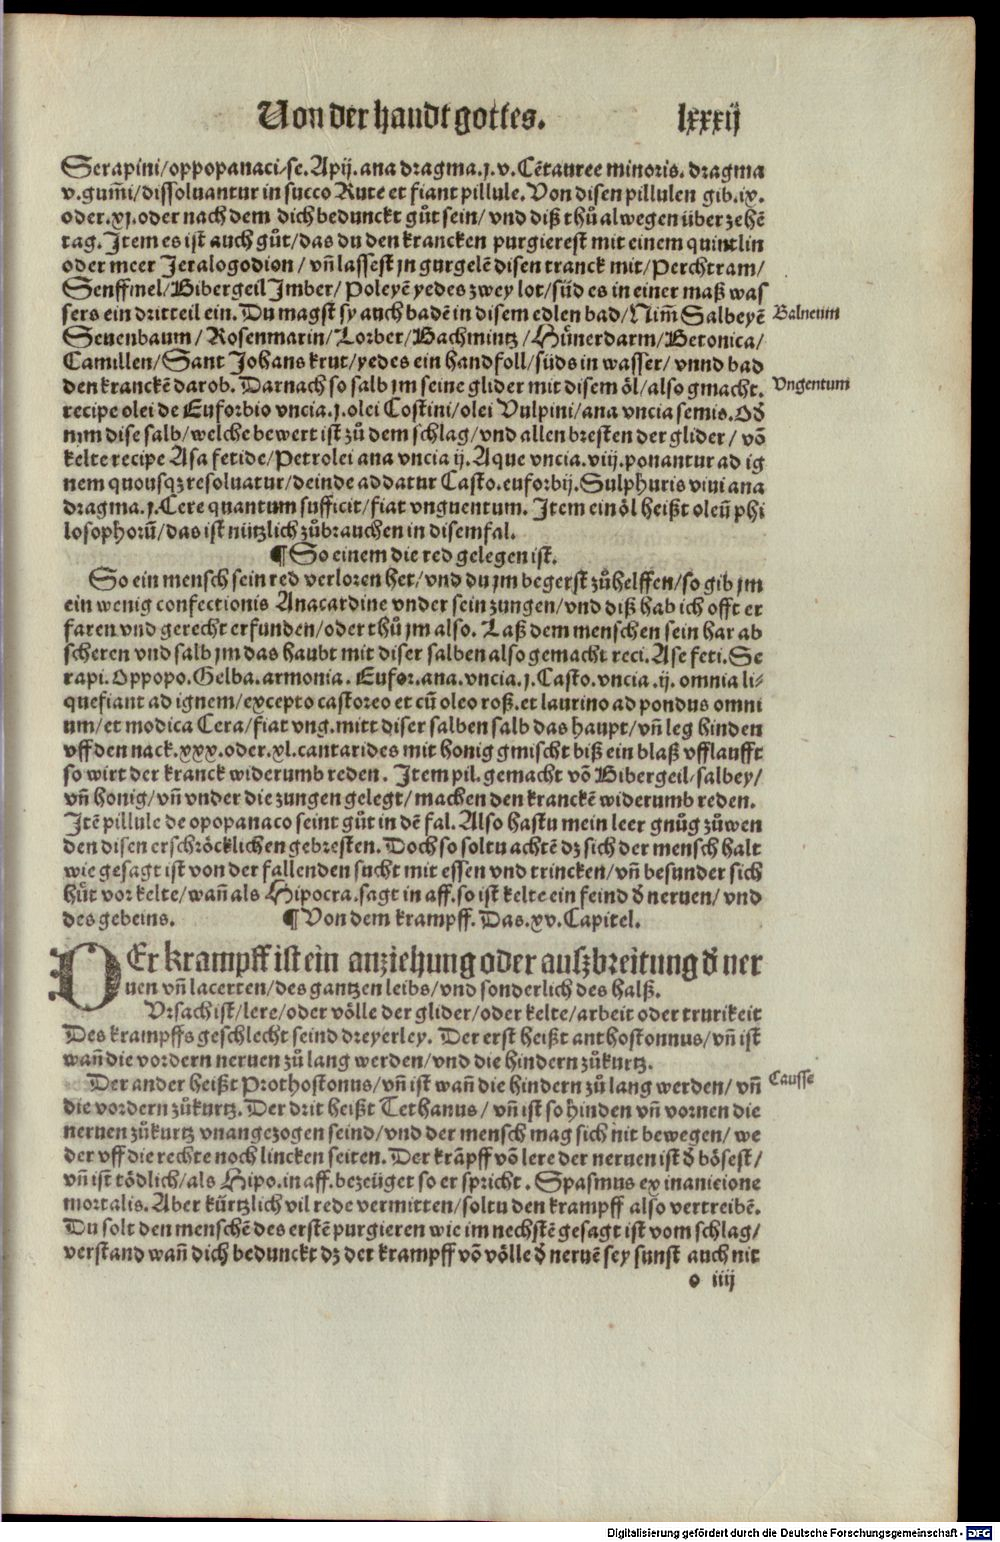 Von der handt gottes. lxxxij
Serapini/oppopanaci⸗se. Apij. ana dragma.j.v. Cētauree minoris. dragma
v.gum̄i/dissoluantur in succo Rute et fiant pillule. Von disen pillulen gib.ix.
oder.xj.oder nach dem dich bedunckt gůt sein/ vnd diß thů alwegen über zehē
tag. Item es ist auch gůt/das du den krancken purgierest mit einem quintlin
oder meer Jeralogodion/ vn̄ lassest jn gurgelē disen tranck mit/Perchtram/
Senffmel/Bibergeil Imber/ Poleyē yedes zwey lot/süd es in einer maß was
sers ein dritteil ein. Du magst sy auch badē in disem edlen bad/Nim̄ Salbeyē
Balneum
Seuenbaum/ Rosenmarin/Lorber/Bachmintz/Hůnerdarm/Betonica/
Camillen/Sant Johans krut/yedes ein handfoll/süds in wasser/ vnnd bad
den kranckē darob. Darnach so salb jm seine glider mit disem öl/also gmacht.
Vngentum
recipe olei de Euforbio vncia.j.olei Costini/olei Vulpini/ana vncia semis. Od̄
nim dise salb/welche bewert ist zů dem schlag/vnd allen bresten der glider/ vō
kelte recipe Asa fetide/Petrolei ana vncia ij. Aque vncia.viij.ponantur ad ig
nem quousqꝫ resoluatur/deinde addatur Casto.euforbij. Sulphuris viui ana
dragma.j.Cere quantum sufficit/fiat vnguentum. Item ein öl heißt oleū phi
losophorū/das ist nützlich zůbrauchen in disem fal.
¶ So einem die red gelegen ist.
So ein mensch sein red verloren het/vnd du jm begerst zůhelffen/so gib jm
ein wenig confectionis Anacardine vnder sein zungen/vnd diß hab ich offt er
faren vnd gerecht erfunden/oder thů jm also. Laß dem menschen sein har ab
scheren vnd salb jm das haubt mit diser salben also gemacht reci. Ase feti. Se
rapi. Oppopo. Gelba.armonia. Eufor.ana.vncia.j.Casto.vncia.ij. omnia li⸗
quefiant ad ignem/excepto castoreo et cū oleo roß.et laurino ad pondus omni
um/et modica Cera/fiat vng.mitt diser salben salb das haupt/vn̄ leg hinden
vff den nack.xxx.oder.xl.cantarides mit honig gmischt biß ein blaß vfflaufft
so wirt der kranck widerumb reden. Item pil.gemacht vō Bibergeil⸗salbey/
vn̄ honig/vn̄ vnder die zungen gelegt/machen den kranckē widerumb reden.
Itē pillule de opopanaco seint gůt in dē fal. Also hastu mein leer gnůg zůwen
den disen erschröcklichen gebresten. Doch so soltu achtē dz sich der mensch halt
wie gesagt ist von der fallenden sucht mit essen vnd trincken/vn̄ besunder sich
hůt vor kelte/wan̄ als Hipocra.sagt in aff.so ist kelte ein feind d̄ neruen/ vnd
des gebeins. ¶ Von dem krampff. Das.xv.Capitel.
DEr krampff ist ein anziehung oder auszbreitung d̄ ner
uen vn̄ lacerten/des gantzen leibs/vnd sonderlich des halß.
Vrsach ist/lere/oder völle der glider/oder kelte/arbeit oder trurikeit
Des krampffs geschlecht seind dreyerley. Der erst heißt anthostonnus/vn̄ ist
wan̄ die vordern neruen zů lang werden/vnd die hindern zůkurtz.
Der ander heißt Prothostonus/vn̄ ist wan̄ die hindern zů lang werden/ vn̄
Causse
die vordern zůkurtz. Der drit heißt Tethanus/ vn̄ ist so hinden vn̄ vornen die
neruen zůkurtz vnangezogen seind/vnd der mensch mag sich nit bewegen/ we
der vff die rechte noch lincken seiten. Der krāpff vō lere der neruen ist d̄ bösest/
vn̄ ist tödlich/als Hipo.in aff.bezeüget so er spricht. Spasmus ex inanicione
mortalis. Aber kürtzlich vil rede vermitten/soltu den krampff also vertreibē.
Du solt den menschē des erstē purgieren wie im nechstē gesagt ist vom schlag/
verstand wan̄ dich bedunckt dz der krampff vō völle d̄ neruē sey sunst auch nit
o iiij
Digitalisierung gefördert durch die Deutsche Forschungsgemeinschaft - DFG